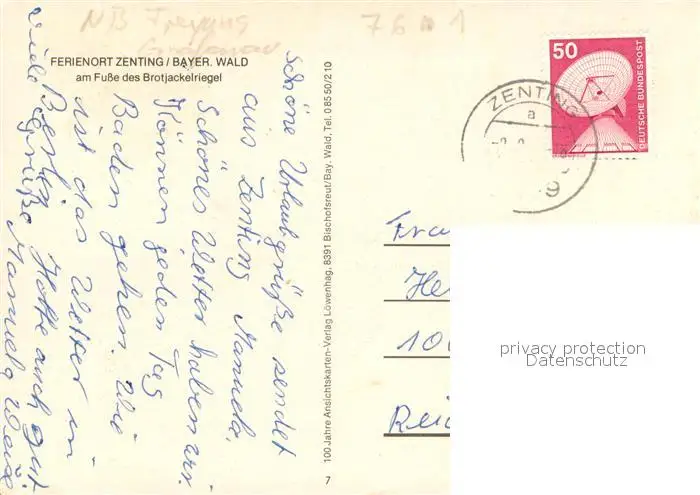 NB Freyung
Grafenau
76 1
FERIENORT ZENTING / BAYER. WALD
am Fuße des Brotjackelriegel
50
DEUTSCHE BUNDESPOST
ZENTING
a
9
Schöne Urlaubgrüße sendet
aus Zenting Manuela.
Schönes Wetter haben wir.
Können jeden Tag
Baden gehen. Wie
ist das Wetter in
Berlin. Hoffe auch gut.
viele grüße Manuela
100 Jahre Ansichtskarten-Verlag Löwenhag, 8391 Bischofsreut/Bay. Wald, Tel. 0 85 50/2 10
7
Fra
He
100
Rei
privacy protection
Datenschutz